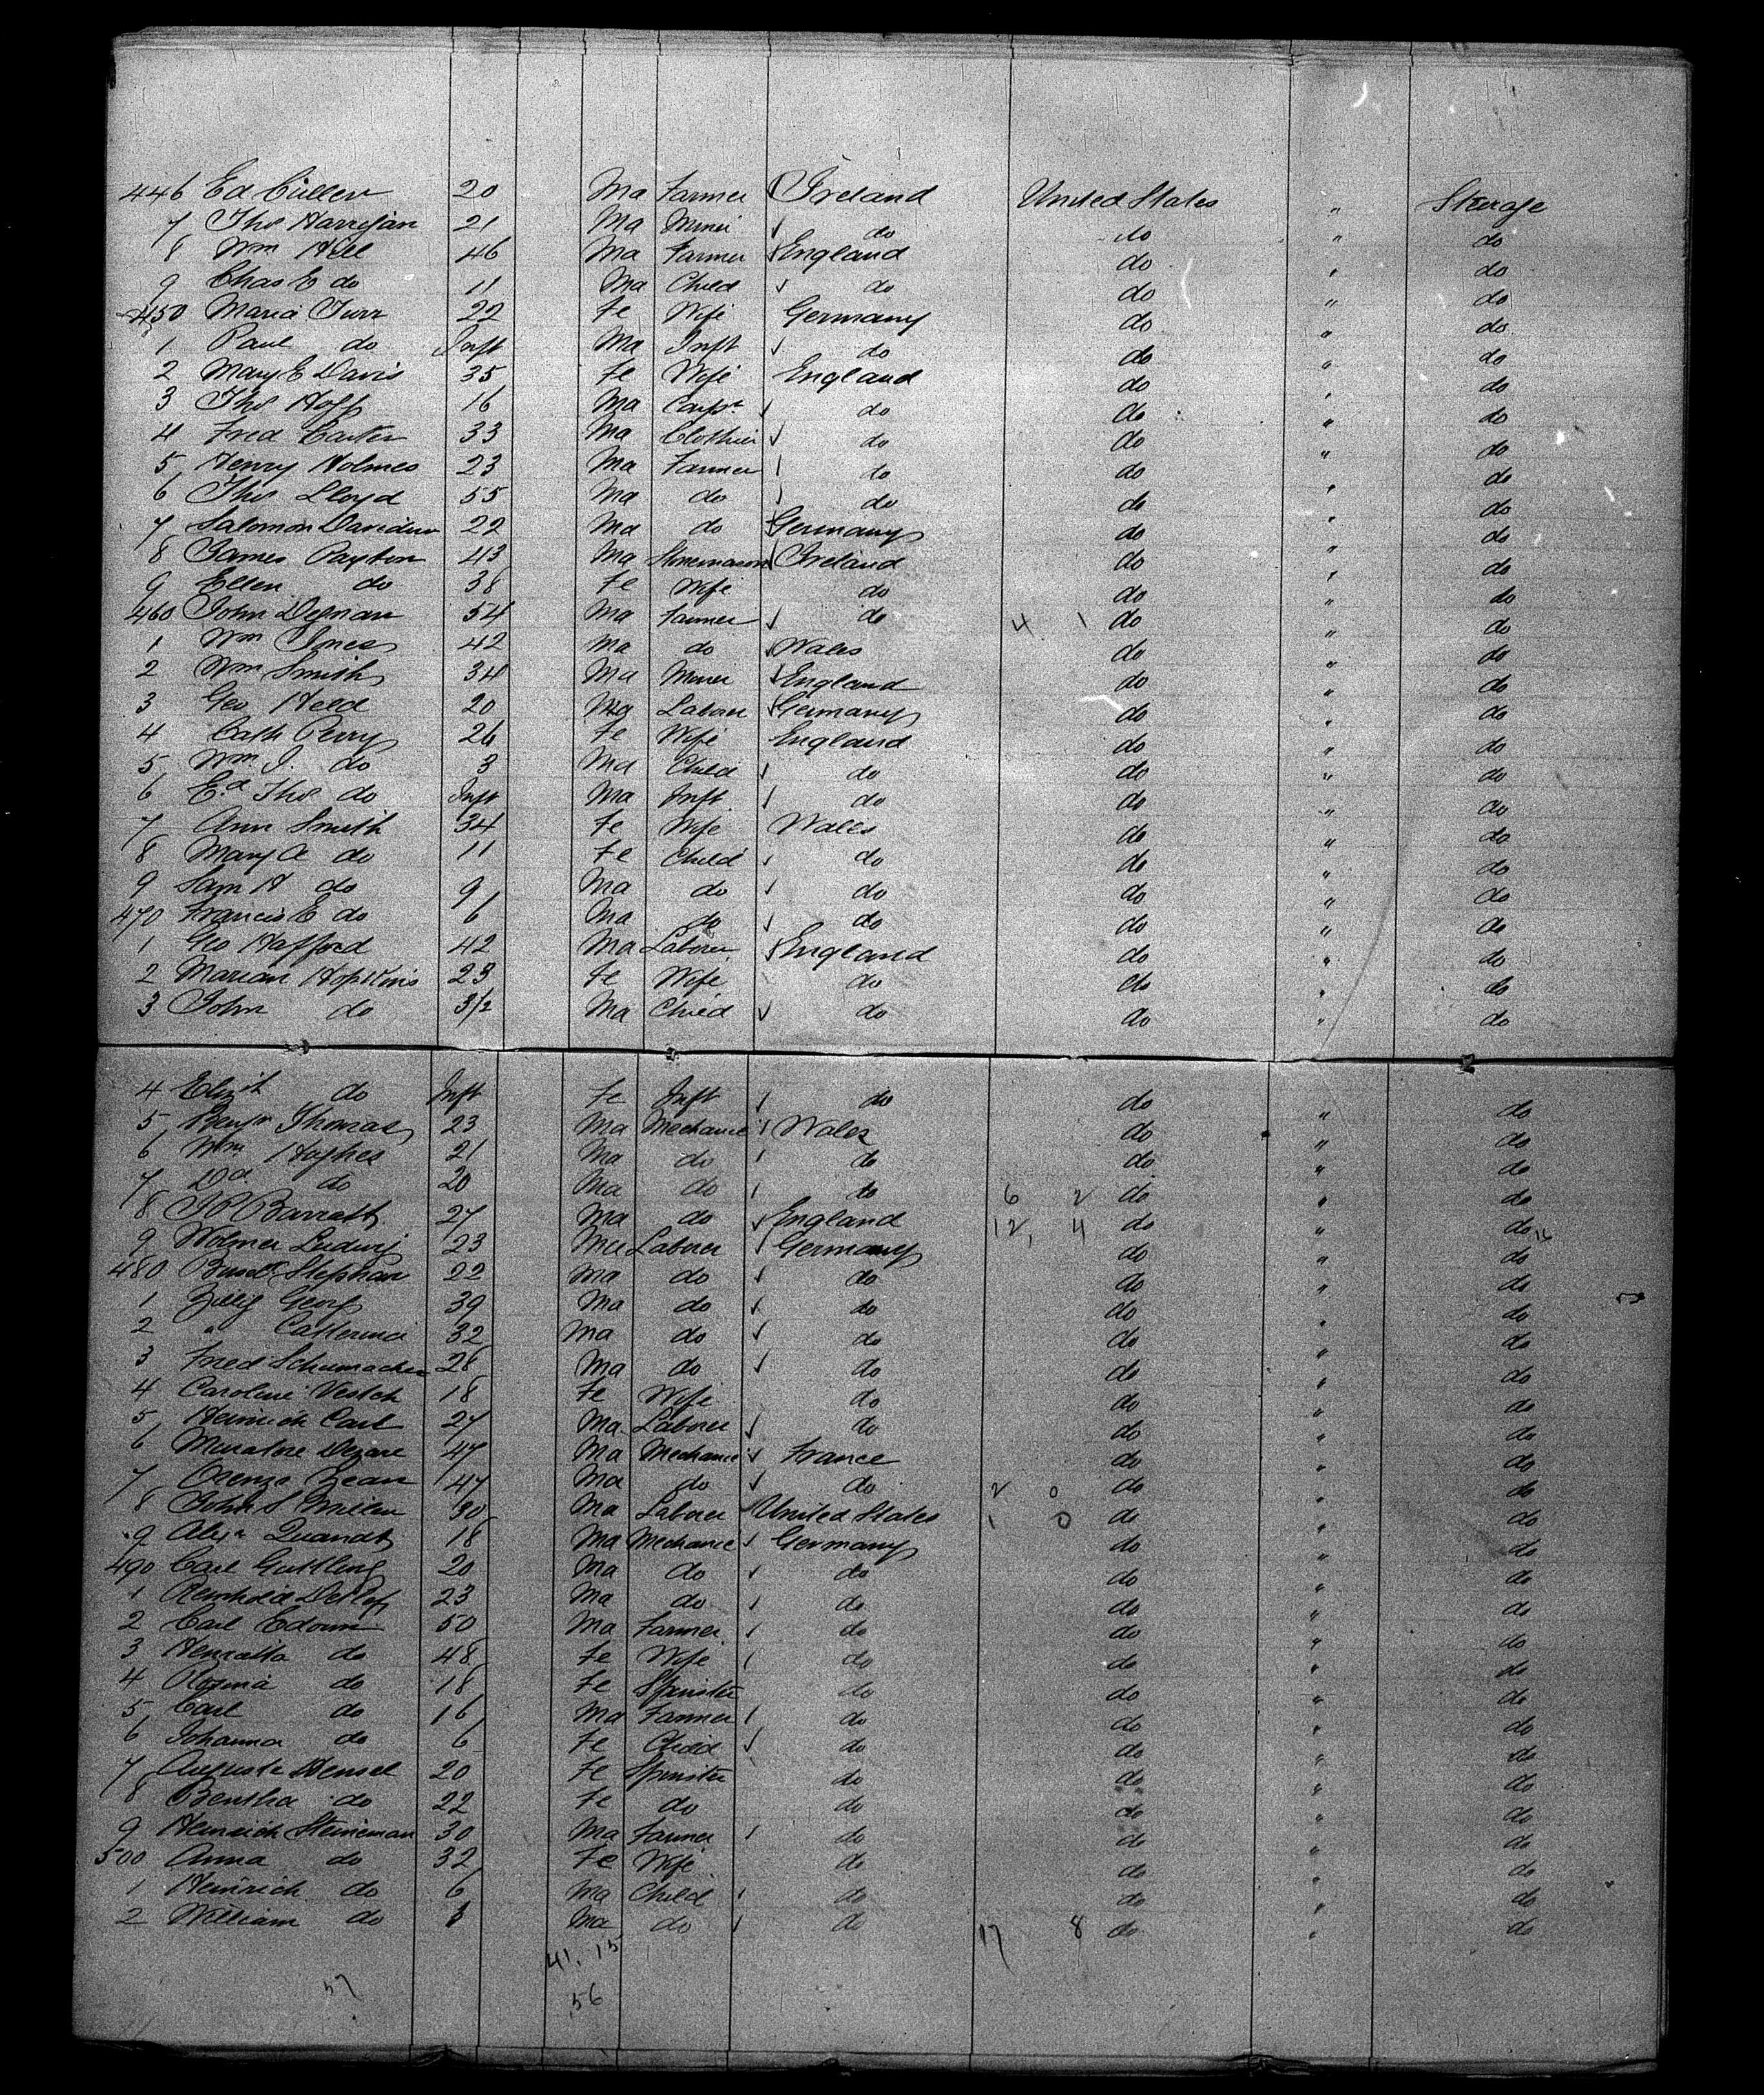 446 Ed Cullen 20 Ma Farmer Ireland United States " Steerage
7 Thos Harrigan 21 Ma Miner do do " do
8 Wm Hill 46 Ma Farmer England do " do
9 Chas E do 11 Ma Child do do " do
450 Maria Turr 22 Fe Wife Germany do " do
1 Paul do Inft Ma Inft do do " do
2 Mary E Davis 35 Fe Wife England do " do
3 Thos Hoff 16 Ma Carpr do do " do
4 Fred Carter 33 Ma Clothier do do " do
5 Henry Holmes 23 Ma Farmer do do " do
6 Thos Lloyd 55 Ma do do do " do
7 Salomon 22 Ma do Germany do " do
8 James Payton 43 Ma Stonemason Ireland do " do
9 Ellen do 38 Fe Wife do do " do
460 John Degnan 54 Ma Farmer do 4 1 do " do
1 Wm Jones 42 Ma do Wales do " do
2 Wm Smith 34 Ma Miner England do " do
3 Geo Held 20 Ma Laborer Germany do " do
4 Cath Perry 26 Fe Wife England do " do
5 Wm J. do 3 Ma Child do do " do
6 Ed Thos do Inft Ma Inft do do " do
7 Ann Smith 34 Fe Wife Wales do " do
8 Mary A do 11 Fe Child do do " do
9 Sam H do 9 Ma do do do " do
470 Francis E do 6 Ma do do do " do
1 Geo Hafford 42 Ma Laborer England do " do
2 Marian Hopkins 23 Fe Wife do do " do
3 John do 3/2 Ma Child do do " do
4 Elizth do Inft Fe Inft do do " do
5 Benjn Thomas 23 Ma Mechanic Wales do " do
6 Wm Hughes 21 Ma do do do " do
7 Dd do 20 Ma do do 6 2 do " do
8 J P Barratt 27 Ma do England 12, 4 do " do
9 Wolmer Ludwig 23 Ma Laborer Germany do " do
480 Stephan 22 Ma do do do " do
1 Zillig Georg 39 Ma do do do " do
2 " Catterina 32 Ma do do do " do
3 Fred Schumacher 28 Ma do do do " do
4 Caroline 18 Fe Wife do do " do
5 Heinrich Carl 27 Ma Laborer do do " do
6 Muratore 47 Ma Mechanic France do " do
7 47 Ma do do 2 0 do " do
8 John S Miller 30 Ma Laborer United States 1 0 do " do
9 Alexr Quandt 18 Ma Mechanic Germany do " do
490 Carl Guttling 20 Ma do do do " do
1 Reinhold Detlof 23 Ma do do do " do
2 Carl Edoum 50 Ma Farmer do do " do
3 Henrietta do 48 Fe Wife do do " do
4 Rosina do 18 Fe Spinster do do " do
5 Carl do 16 Ma Farmer do do " do
6 Johanna do 6 Fe Child do do " do
7 Auguste Hensel 20 Fe Spinster do do " do
8 Bertha do 22 Fe do do do " do
9 Heinrich Steineman 30 Ma Farmer do do " do
500 Anna do 32 Fe Wife do do " do
1 Heinrich do 6 Ma Child do do " do
2 William do Ma do do 17 8 do " do
41. 15
57 56